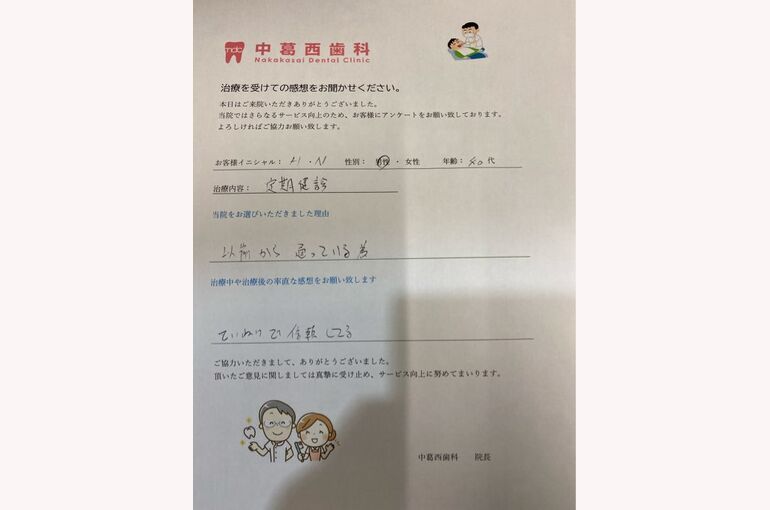 ndc 中葛西歯科
Nakakasai Dental Clinic
治療を受けての感想をお聞かせください。
本日はご来院いただきありがとうございました。
当院ではさらなるサービス向上のため、お客様にアンケートをお願い致しております。
よろしければご協力お願い致します。
お客様イニシャル： H ・ N 性別： 男性 ・ 女性 年齢： 40 代
治療内容： 定期健診
当院をお選びいただきました理由
以前から通っている為
治療中や治療後の率直な感想をお願い致します
ていねいで信頼してる
ご協力いただきまして、ありがとうございました。
頂いたご意見に関しましては真摯に受け止め、サービス向上に努めてまいります。
中葛西歯科 院長